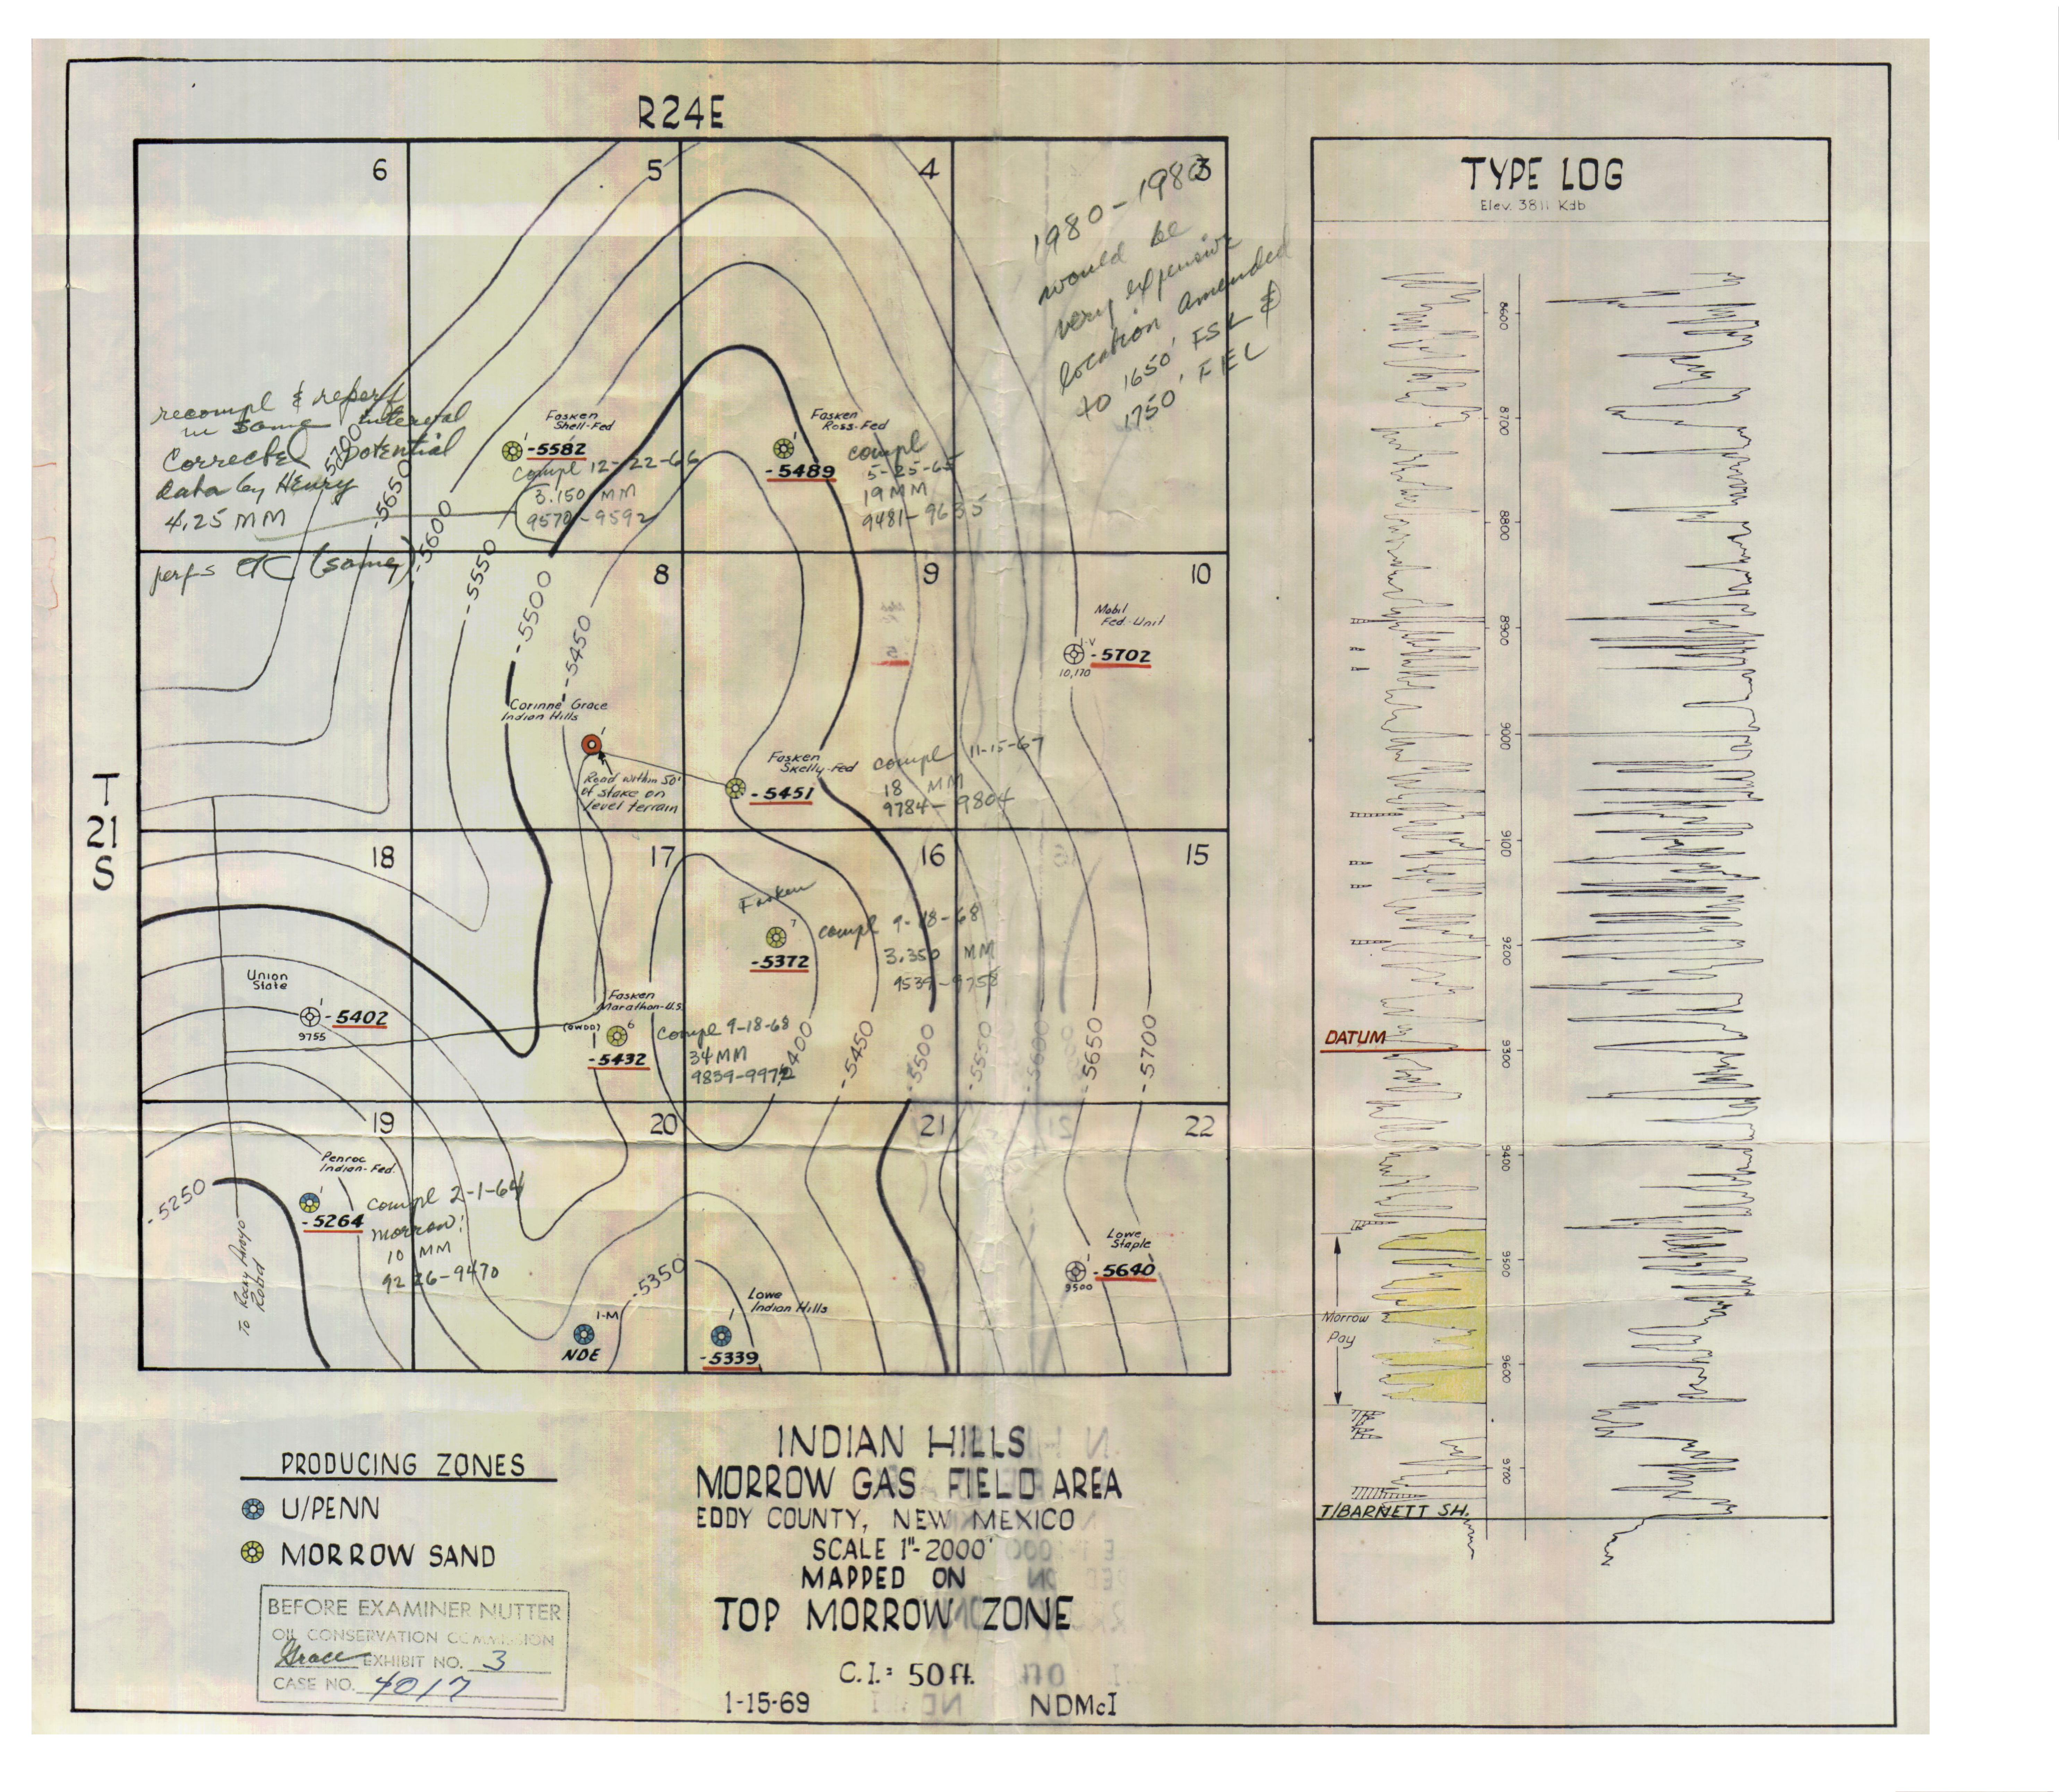 R24E
6
5
4
3
1980-1980
would be
very expensive
location amended
to 1650' FSL &
1750' FEL
recompl & reperf
in same interval
Corrected potential
data by Henry
4.25 MM
perfs etc (same)
-5700
-5650
-5600
-5550
-5500
-5450
Fasken
Shell-Fed
1
-5582
compl 12-22-66
3.150 MM
9570-9592
Fasken
Ross-Fed
1
-5489
compl
5-25-65
19 MM
9481-9635
8
9
10
Mobil
Fed.-Unit
1-V
-5702
10,170
Corinne Grace
Indian Hills
1
Road within 50'
of stake on
level terrain
Fasken
Skelly-Fed
-5451
compl 11-15-67
18 MM
9784-9804
T
21
S
18
17
16
15
Fasken
7
-5372
compl 9-18-68
3.350 MM
9539-9758
Union
State
1
-5402
9755
Fasken
Marathon-U.S.
(OWDD)
1
6
-5432
Compl 9-18-68
34 MM
9839-9972
-5400
-5450
-5500
-5550
-5600
-5650
-5700
19
20
21
22
-5250
Penroc
Indian-Fed.
1
-5264
compl 2-1-64
morrow!
10 MM
9226-9470
To Rocky Arroyo
Road
-5350
1-M
NDE
Lowe
Indian Hills
1
-5339
Lowe
Staple
1
-5640
9500
PRODUCING ZONES
U/PENN
MORROW SAND
BEFORE EXAMINER NUTTER
OIL CONSERVATION COMMISSION
Grace EXHIBIT NO. 3
CASE NO. 4017
INDIAN HILLS
MORROW GAS FIELD AREA
EDDY COUNTY, NEW MEXICO
SCALE 1"-2000'
MAPPED ON
TOP MORROW ZONE
C.I.= 50 ft.
1-15-69 NDMcI
TYPE LOG
Elev. 3811 Kdb
8600
8700
8800
8900
9000
9100
9200
DATUM
9300
9400
9500
Morrow
Pay
9600
9700
T/BARNETT SH.